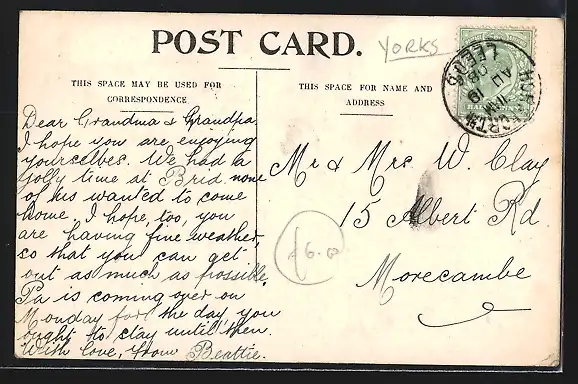 POST CARD.
YORKS
THIS SPACE MAY BE USED FOR
CORRESPONDENCE
THIS SPACE FOR NAME AND
ADDRESS
LEEDS
HALFPENNY
Dear Grandma & Grandpa,
I hope you are enjoying
yourselves. We had a
jolly time at Brid. none
of us wanted to come
home. I hope, too, you
are having fine weather,
so that you can get
out as much as possible.
Pa is coming over on
Monday for the day you
ought to stay until then.
With love, from Beattie.
Mr & Mrs W. Clay
15 Albert Rd
Morecambe
£6.00